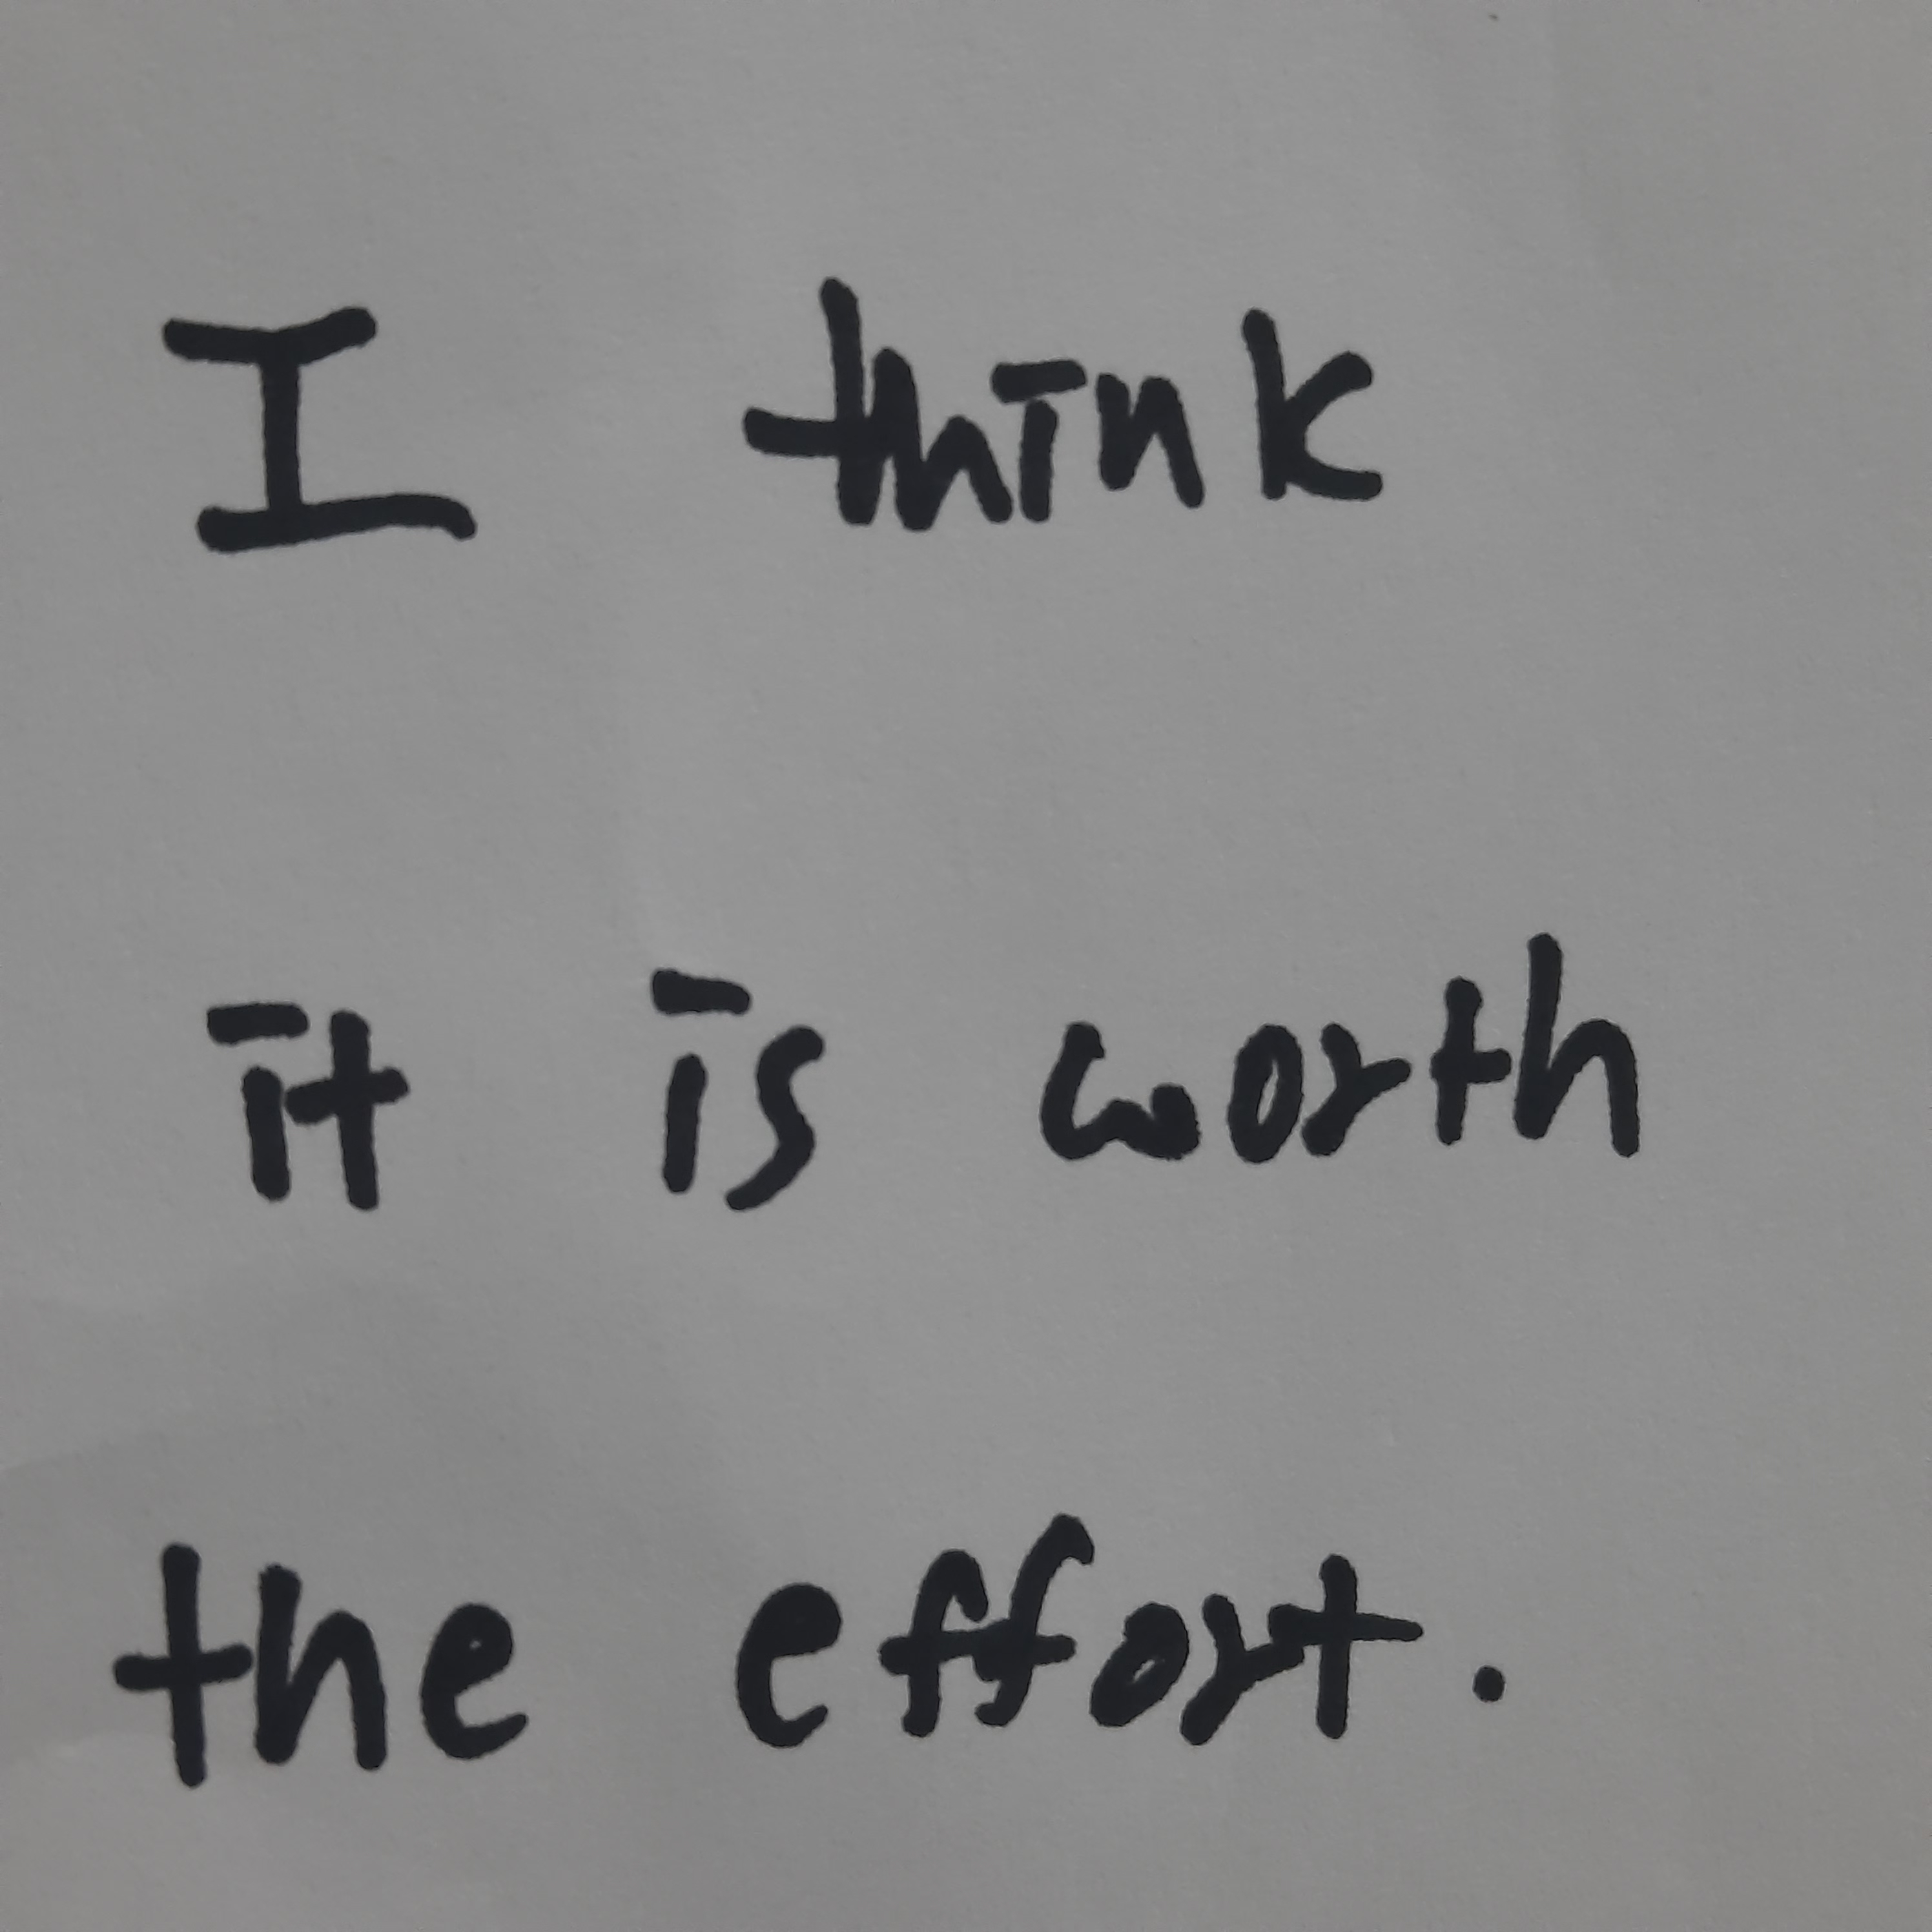 I think
it is worth
the effort.